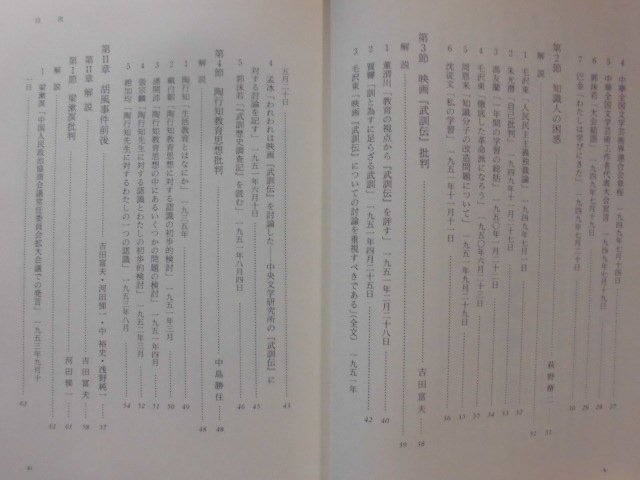 4 中華全国文学芸術界連合会章程 一九四九年七月十四日 27
5 中華全国文学芸術工作者代表大会宣言 一九四九年七月十九日 28
6 郭沫若「大会結語」 一九四九年七月二十日 29
7 巴金「わたしは学びにきた」 一九四九年七月二十日 30
第2節 知識人の困惑
解説 萩野脩二 31
1 毛沢東「人民民主主義独裁論」 一九四九年七月一日 31
2 朱光潜「自己批判」 一九四九年十一月二十七日 32
3 馮友蘭「一年間の学習の総括」 一九五〇年一月二十二日 33
4 毛沢東「徹底した革命派になろう」 一九五〇年六月二十三日 34
5 周恩来「知識分子の改造問題について」 一九五一年九月二十九日 35
6 沈従文「私の学習」 一九五一年十一月十一日 36
第3節 映画『武訓伝』批判 吉田富夫 38
解説 39
1 董渭川「教育の視点から『武訓伝』を評す」 一九五一年二月二十八日 40
2 賈霽「訓と為すに足らざる武訓」 一九五一年四月二十五日 42
3 毛沢東「映画『武訓伝』についての討論を重視すべきである」〈全文〉 一九五一年
五月二十日 43
4 孟冰「われわれは映画『武訓伝』を討論した——中央文学研究所の『武訓伝』に
対する討論を記す」 一九五一年六月十日 45
5 郭沫若「『武訓歴史調査記』を読む」 一九五一年八月四日 46
第4節 陶行知教育思想批判 中島勝住 48
解説 48
1 陶行知「生活教育とはなにか」 一九三五年 49
2 戴白韜「陶行知教育思想に対する認識の初歩的検討」 一九五一年三月 50
3 潘開沛「陶行知教育思想の中にあるいくつかの問題の検討」 一九五一年四月 51
4 張宗麟「陶行知先生に対する認識とわたしの初歩的検討」 一九五二年三月 52
5 　加均「陶行知先生に対するわたしの一つの認識」 一九五三年八月 54
第Ⅱ章 胡風事件前後 吉田富夫・河田悌一・中裕史・浅野純一 57
第Ⅱ章 解説 吉田富夫 58
第1節 梁漱溟批判 河田悌一 61
解説 61
1 梁漱溟「中国人民政治協商会議常任委員会拡大会議での発言」 一九五三年九月十
一日 62
目次